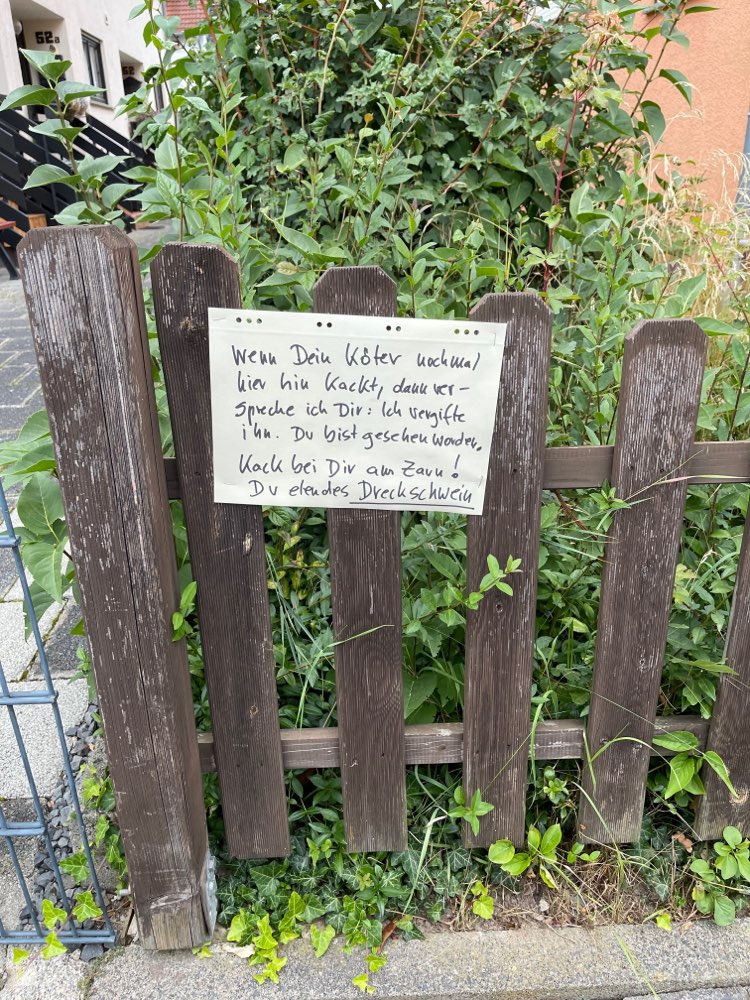 62a
Wenn Dein Köter nochmal
hier hin kackt, dann ver-
spreche ich Dir: Ich vergifte
ihn. Du bist gesehen worden.
Kack bei Dir am Zaun!
Du elendes Dreckschwein